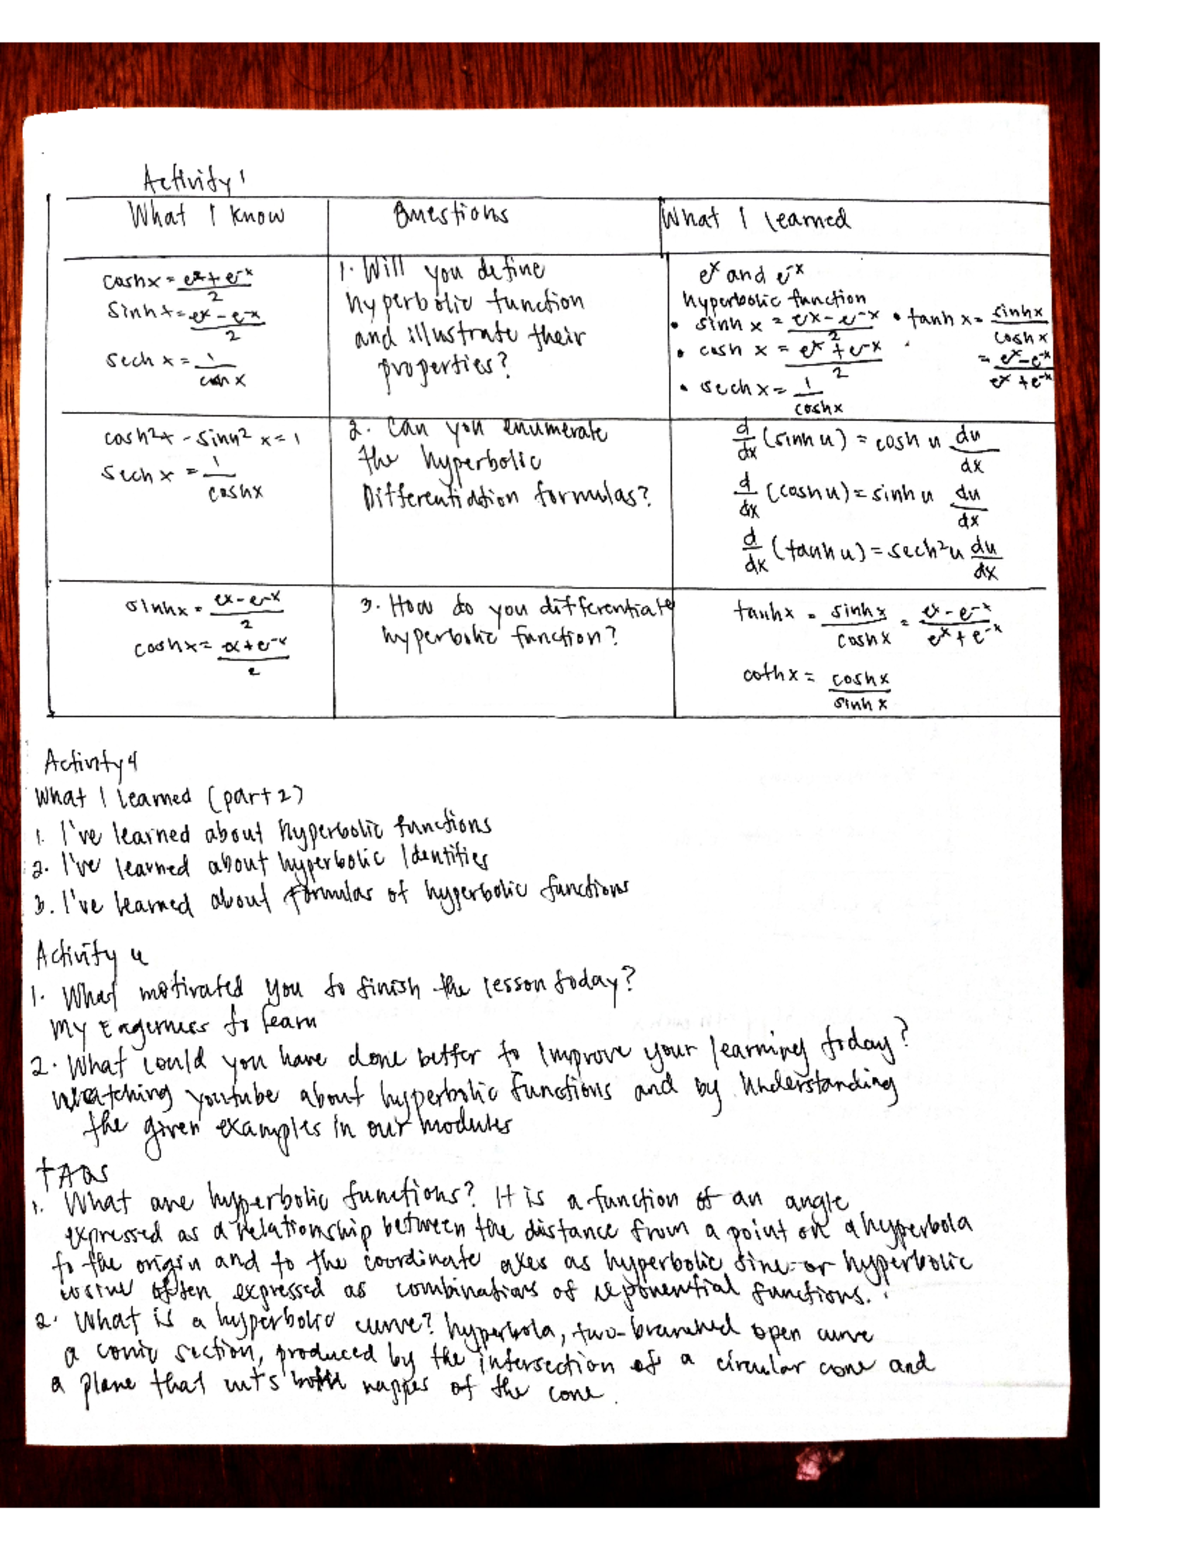 Activity 1
What I know
Questions
What I learned
coshx = e^x + e^-x / 2
Sinhx = e^x - e^-x / 2
sech x = 1 / cosh x
1. Will you define
hyperbolic function
and illustrate their
properties?
e^x and e^-x
hyperbolic function
• sinh x = e^x - e^-x / 2
• cosh x = e^x + e^-x / 2
• sech x = 1 / coshx
• tanh x = sinhx / cosh x
= e^x - e^-x / e^x + e^-x
cosh²x - sinh² x = 1
Sech x = 1 / coshx
2. Can you enumerate
the hyperbolic
Differentiation formulas?
d/dx (sinh u) = cosh u du/dx
d/dx (cosh u) = sinh u du/dx
d/dx (tanh u) = sech²u du/dx
sinhx = e^x - e^-x / 2
coshx = e^x + e^-x / 2
3. How do you differentiate
hyperbolic function?
tanhx = sinhx / coshx = e^x - e^-x / e^x + e^-x
cothx = coshx / sinhx
Activity 4
What I learned (part 2)
1. I've learned about hyperbolic functions
2. I've learned about hyperbolic Identities
3. I've learned about formulas of hyperbolic functions
Activity 4
1. What motivated you to finish the lesson today?
My Eagerness to learn
2. What could you have done better to Improve your learning today?
watching youtube about hyperbolic functions and by Understanding
the given examples in our modules
FAQs
1. What are hyperbolic functions? It is a function of an angle
expressed as a relationship between the distance from a point on a hyperbola
to the origin and to the coordinate axes as hyperbolic sine or hyperbolic
cosine often expressed as combinations of exponential functions.
2. What is a hyperbolic curve? hyperbola, two-branched open curve
a conic section, produced by the intersection of a circular cone and
a plane that cuts both nappes of the cone.